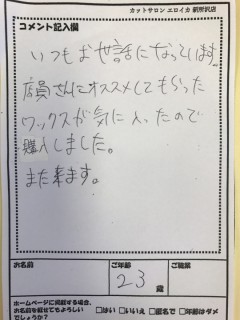 カットサロン エロイカ 新所沢店
コメント記入欄
いつもお世話になっています。
店員さんにオススメしてもらった
ワックスが気に入ったので
購入しました。
また来ます。
お名前
ご年齢
ご職業
23 歳
ホームページに掲載する場合、
お名前を載せてもよろしい
でしょうか?
□はい □いいえ □匿名で □年齢はダメ